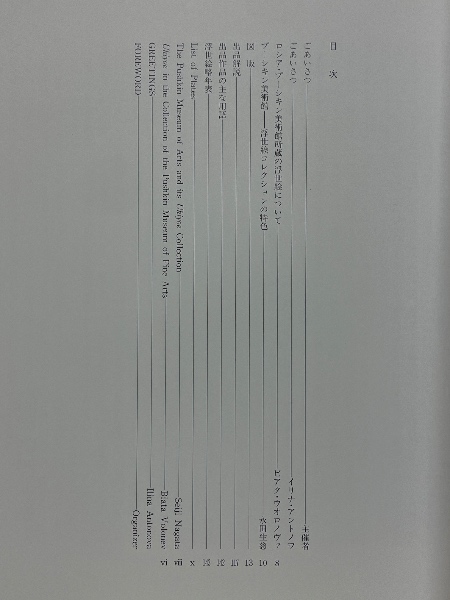 目　次
ごあいさつ　主催者
ごあいさつ　イリナ・アントノワ
ロシア・プーシキン美術館所蔵の浮世絵について　ビアタ・ウオロノヴァ　8
プーシキン美術館――浮世絵コレクションの特色　永田生慈　10
図　版　13
出品解説
出品作品の主な用語
浮世絵略年表
List of Plates　x
The Pushkin Museum of Arts and its Ukiyoe Collection　Seiji Nagata　vii
Ukiyoe in the Collection of the Pushkin Museum of Fine Arts　Biata Volonov　vi
GREETINGS　Ilina Antonova
FOREWORD　Organizer